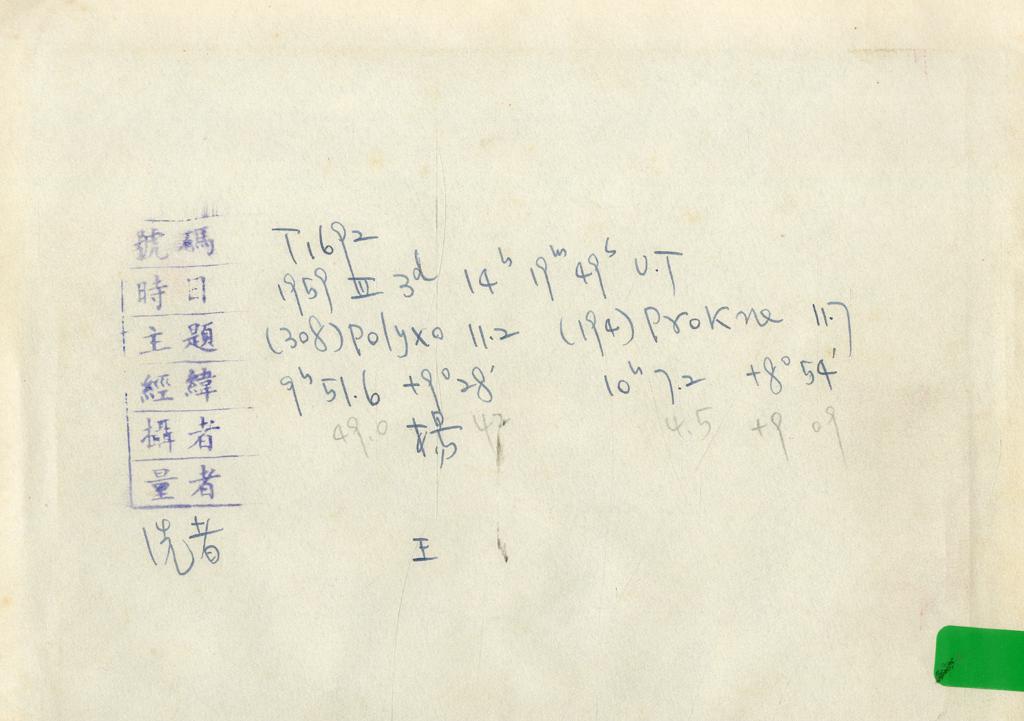 號碼 T1692
時日 1959 III 3d 14h 19m 49s U.T
主題 (308) Polyxo 11.2 (194) Prokne 11.7
經緯 9h 51.6 +9° 28' 10h 7.2 +8° 54'
49.0 42 4.5 +9 09
攝者 楊
量者
洗者 王